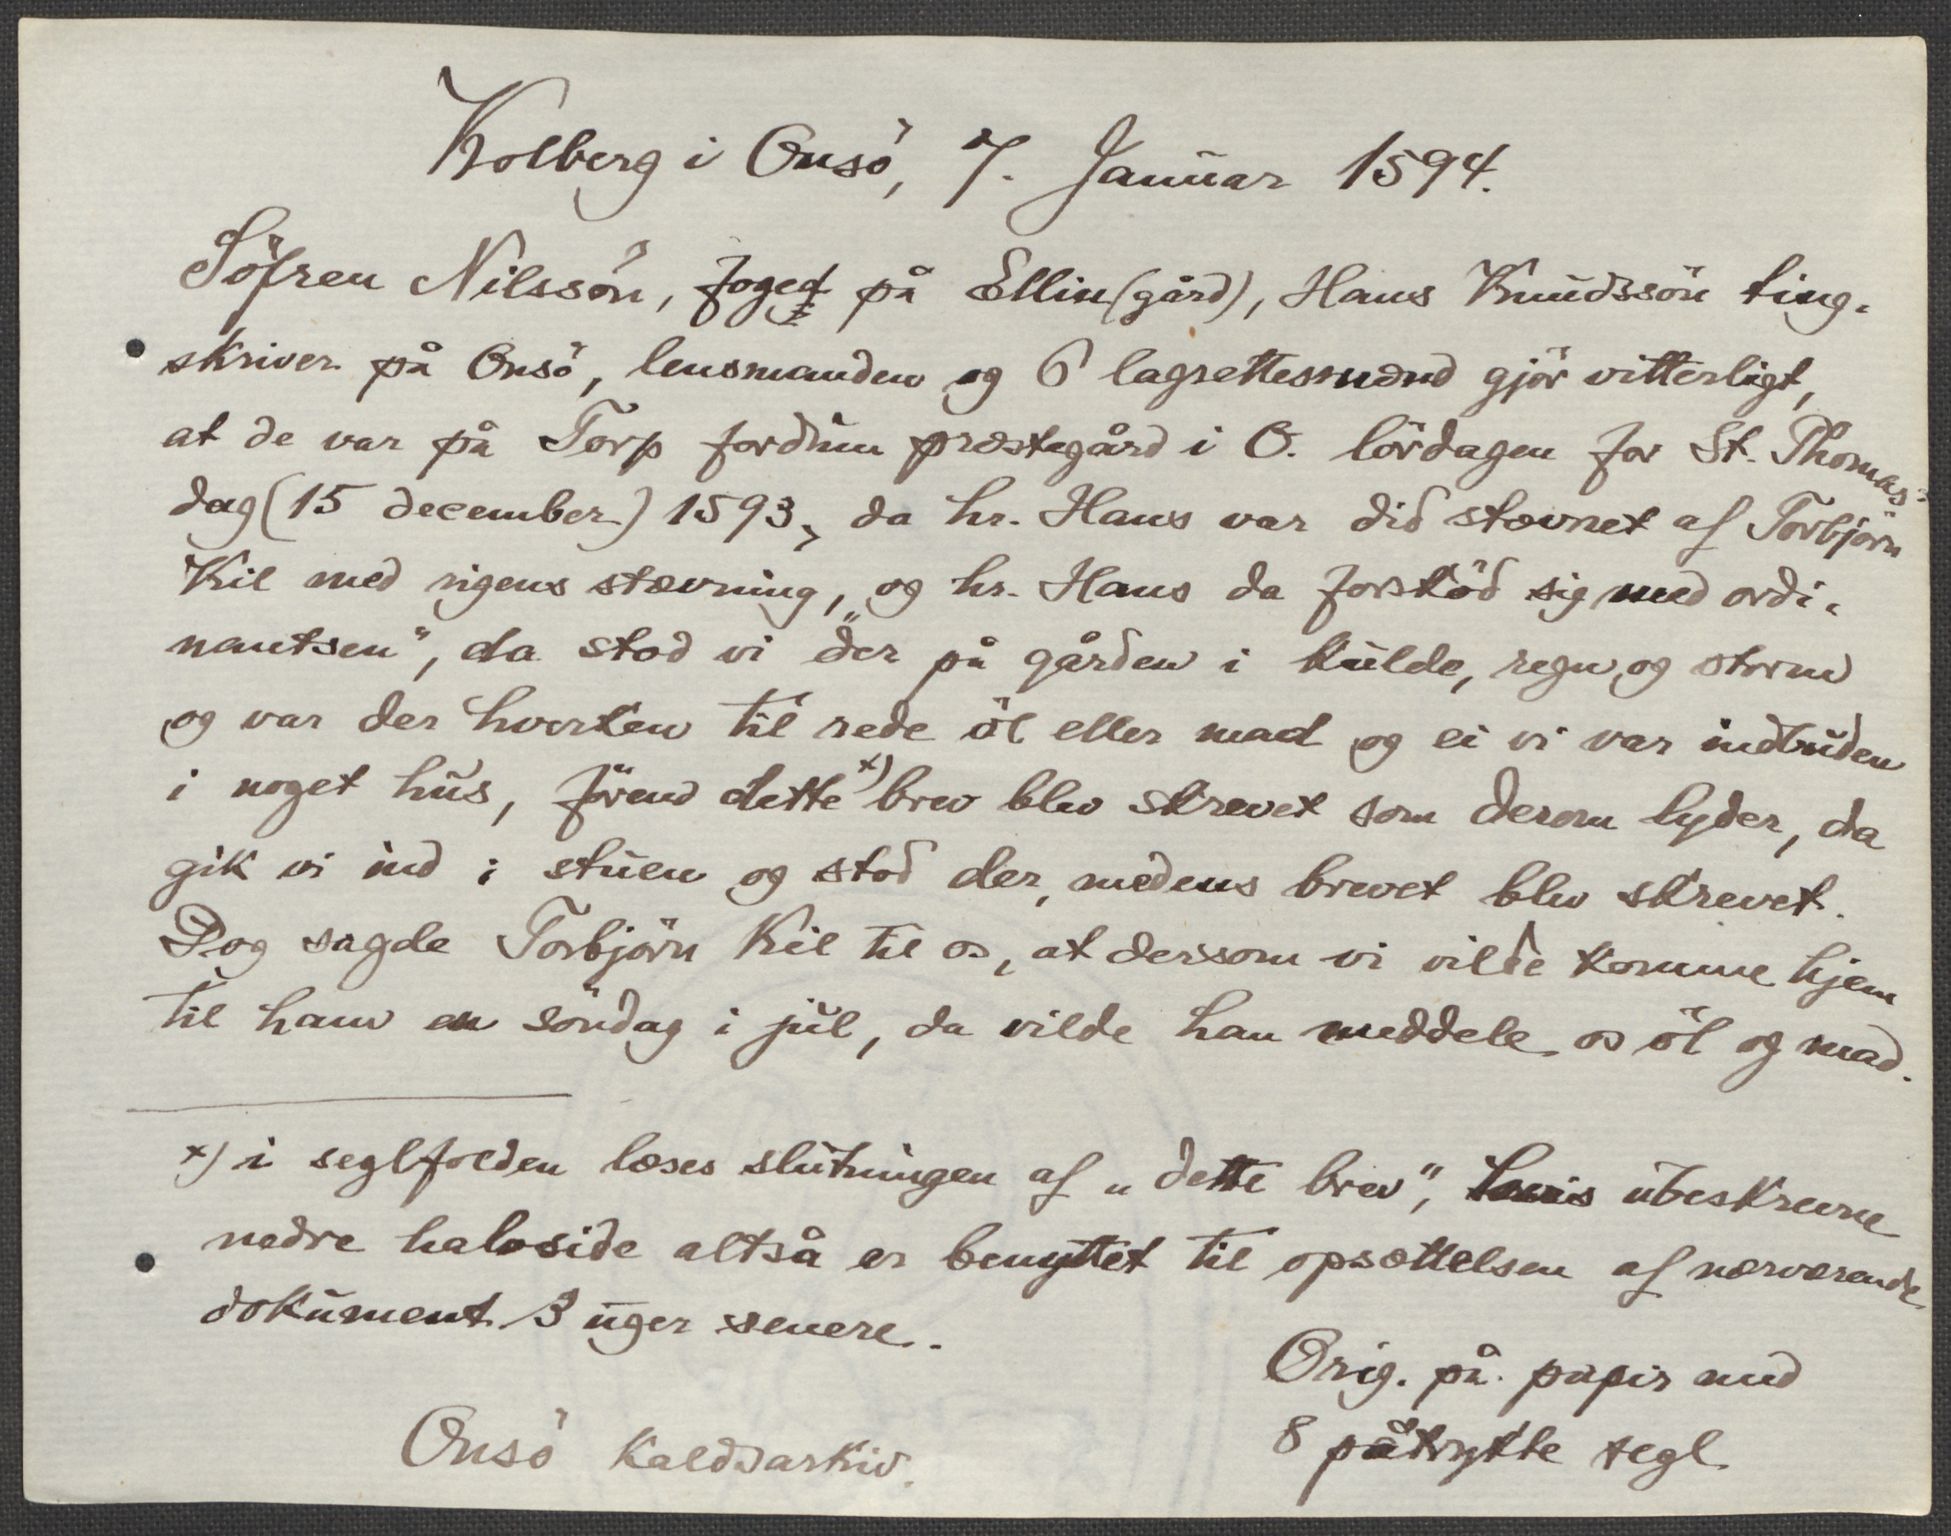 Kolberg i Onsö, 7. Januar 1594.
Söfren Nilssön, foged på Ellin (gård), Hans Knudssön ting-
skriver på Onsö, lensmanden og 6 lagrettesmænd gjör vitterligt,
at de var på Torp fordum præstegård i O. lördagen for St. Thomas-
dag (15 december) 1593, da hr. Hans var did stævnet af Torbjörn
Kil med rigens stævning, og hr. Hans da forsköd sig med „ordi-
nantsen“, da stod vi der på gården i kulde, regn og storm
og var der hverken til rede öl eller mad og ei vi var indbuden
i noget hus, förend dette x) brev blev skrevet som derom lyder, da
gik vi ind i stuen og stod der, medens brevet blev skrevet.
Dog sagde Torbjörn Kil til os, at dersom vi vilde komme hjem
til ham en söndag i jul, da vilde han meddele os öl og mad.
x) i seglfolden læses slutningen af „dette brev“, hvis ubeskrevne
nedre halvside altså er benyttet til opsættelsen af nærværende
dokument 3 uger senere.
Orig. på papir med
8 påtrykte segl.
Onsö kaldsarkiv.